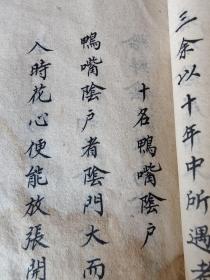 三余以十年中所遇者
十名鴨嘴陰户
鴨嘴陰户者陰門大而
入時花心便能放張開